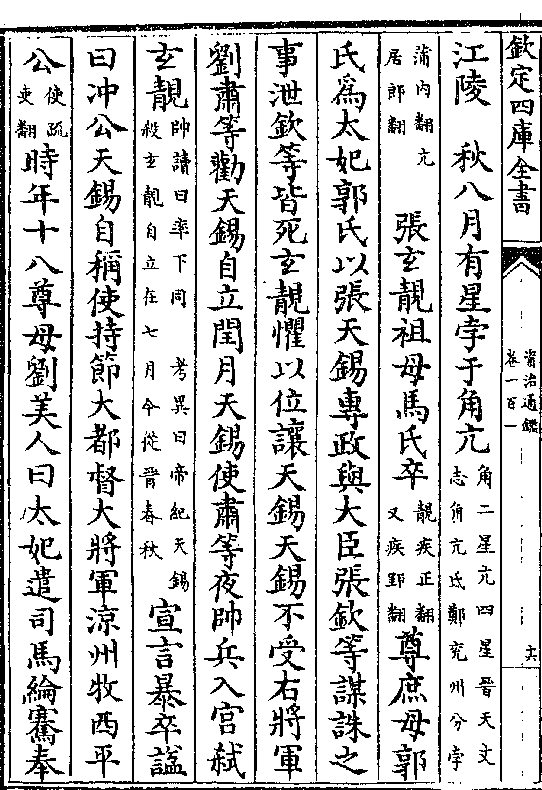 欽定四庫全書
資治通鑑
卷一百一
十六
江陵　秋八月有星孛于角亢角二星亢四星晉天文志角亢氐鄭兗州分孛
蒲内翻亢居郎翻　張玄靚祖母馬氏卒靚疾正翻又疾郢翻尊庶母郭
氏爲太妃郭氏以張天錫專政與大臣張欽等謀誅之
事泄欽等皆死玄靚懼以位讓天錫天錫不受右將軍
劉肅等勸天錫自立閏月天錫使肅等夜帥兵入宫弑
玄靚帥讀曰率下同　考異曰帝紀天錫殺玄靚自立在七月今從晉春秋宣言暴卒諡
曰冲公天錫自稱使持節大都督大將軍涼州牧西平
公使疏吏翻時年十八尊母劉美人曰太妃遣司馬綸騫奉